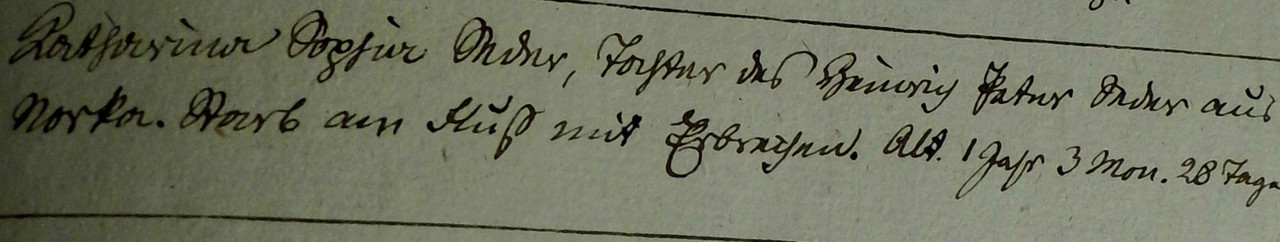 Katharina Sophia Seder, Tochter des Heinrich Peter Seder aus
Norka. Starb am Fluß mit Erbrechen. Alt. 1 Jahr 3 Mon. 28 Tage